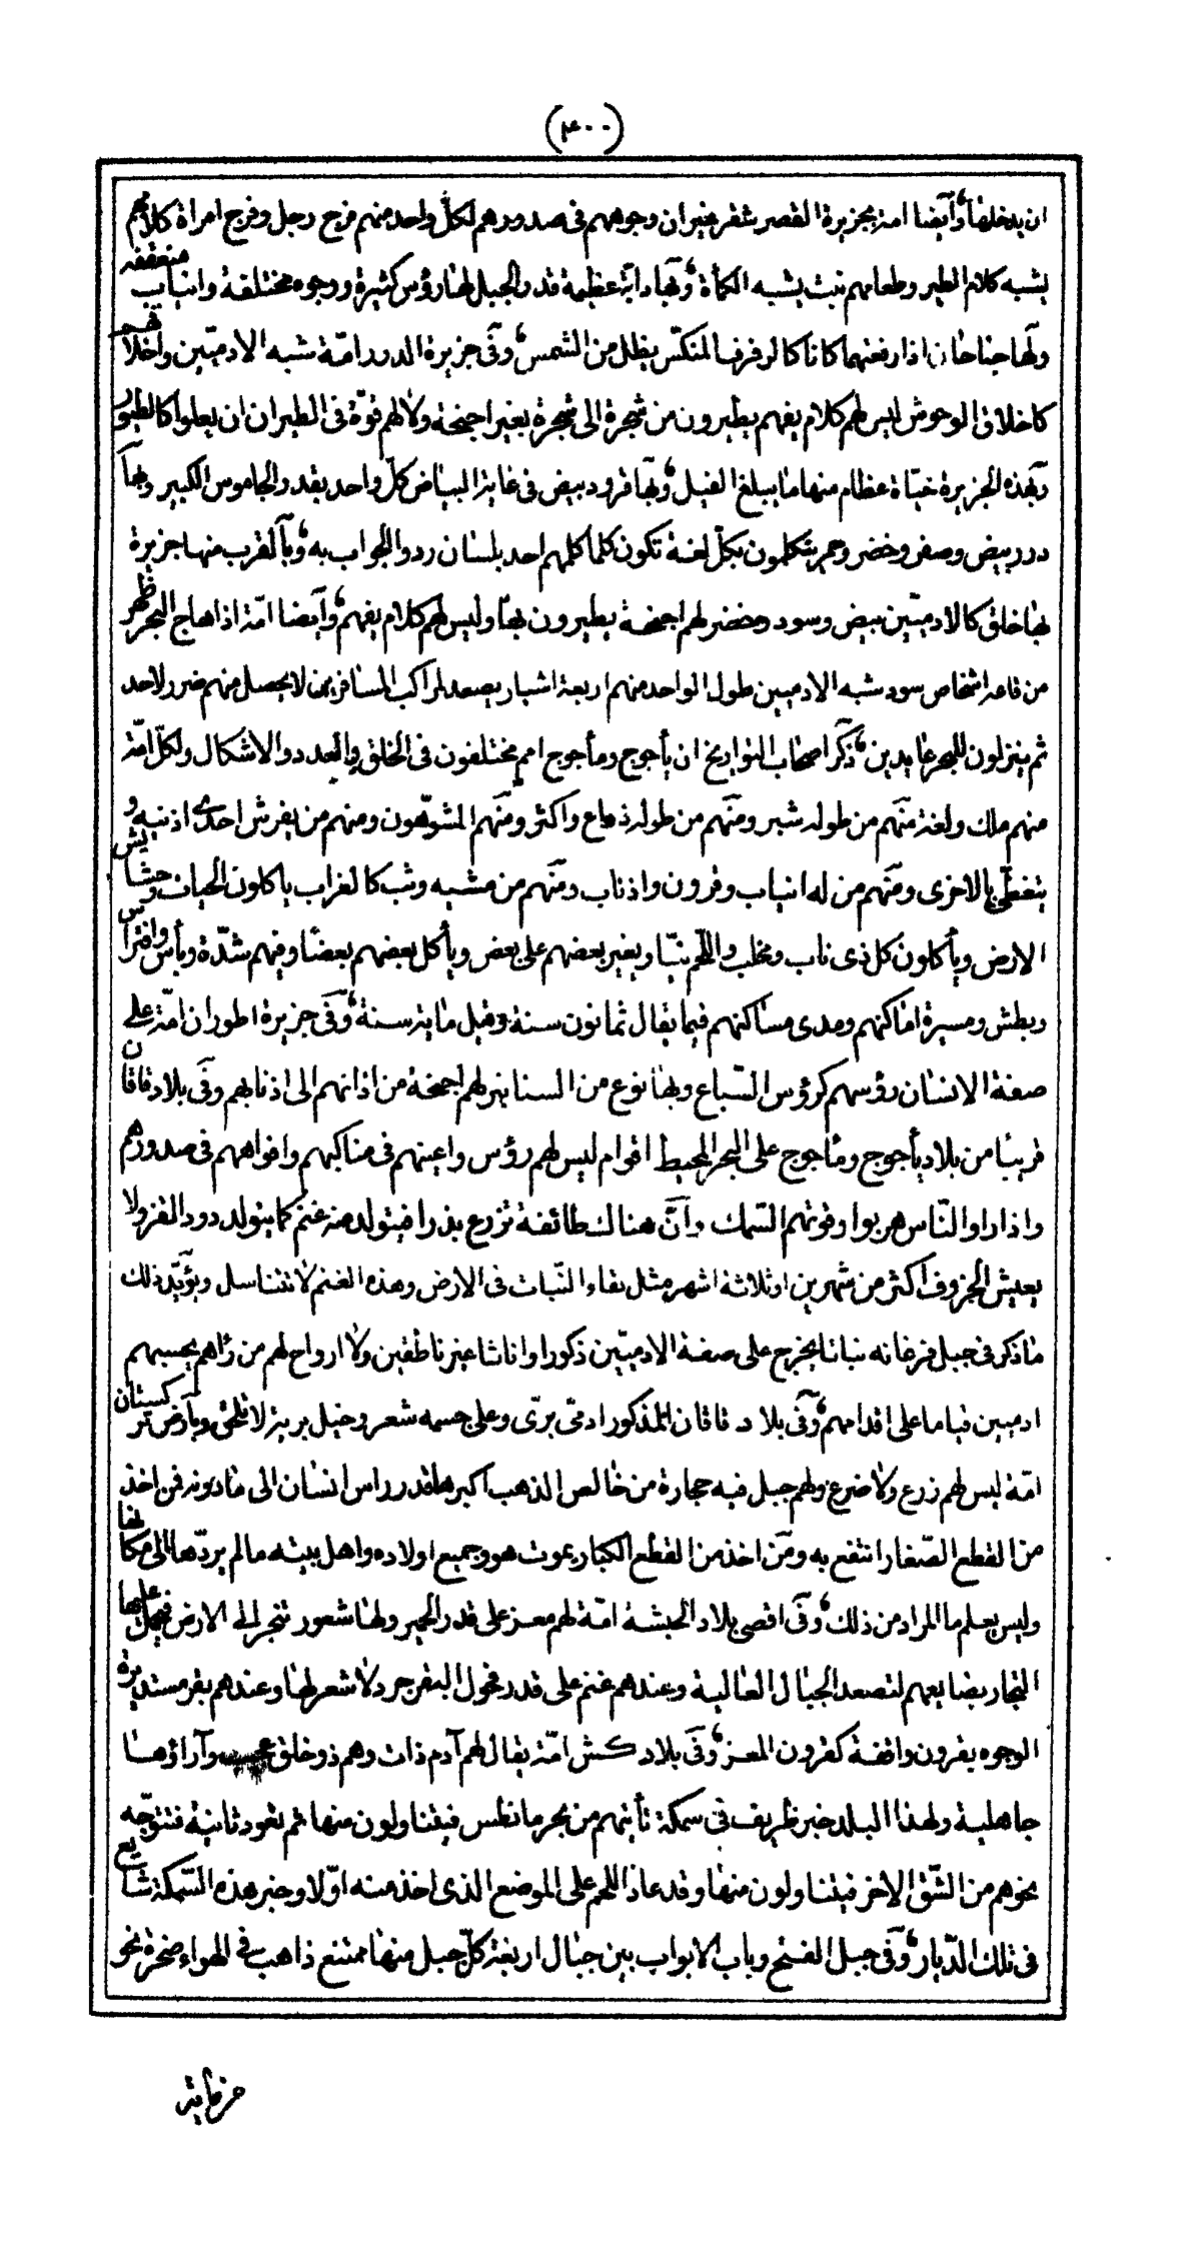 (٤٠٠)
ان يدخلها وأيضا امة بجزيرة القصر شقر غير ان وجوههم فى صدورهم لكلّ واحد منهم فرج رجل وفرج امراة كلامهم
يشبه كلام الطير وطعامهم نبت يشبه الكمأة وبها دابّة عظيمة قدر الجبل لها رؤس كثيرة ووجوه مختلفة وانياب منعقفه
ولها جناحان اذا رفعتهما كانا كالرفرف المنكّس يظلل من الشمس وفى جزيرة الدرر امّة شبه الادميّين واخلاقهم
كاخلاق الوحوش ليس لهم كلام يفهم يطيرون من شجرة الى شجرة بغير اجنحة ولا لهم قوّة فى الطيران ان يعلوا كالطيور
وبهذه الجزيرة حيّاة عظام منها ما يبلغ الفيل وبها قرود بيض فى غاية البياض كلّ واحد بقدر الجاموس الكبير وبها
درر بيض وصفر وخضر وحمر يتكلمون بكلّ لغة تكون كلما كلمهم احد بلسان ردوا الجواب به وبالقرب منها جزيرة
بها خلق كالادميّين بيض وسود وخضر لهم اجنحة يطيرون بها وليس لهم كلام يفهم وأيضا امّة اذا هاج البحر ظهر
من قاعه اشخاص سود شبه الادميين طول الواحد منهم اربعة اشبار يصعد لمراكب المسافرين لا يحصل منهم ضرر لاحد
ثم ينزلون للبحر عايدين ذكر اصحاب التواريخ ان يأجوج ومأجوج امم مختلفون فى الخلق والعدد والاشكال ولكلّ امّة
منهم ملك ولغة منهم من طوله شبر ومنهم من طوله ذراع واكثر ومنهم المشوّهون ومنهم من يفرش احدى اذنيه و
يتغطّى بالاخرى ومنهم من له انياب وقرون واذناب ومنهم من مشيه وثب كالغراب ياكلون الحيات وحشايش
الارض ويأكلون كل ذى ناب ومخلب واللحم نيّا ويغير بعضهم على بعض ويأكل بعضهم بعضا وفيهم شدّة وبأس وافتراس
وبطش ومسيرة اماكنهم ومدى مساكنهم فيما يقال ثمانون سنة وقيل ماية سنة وفى جزيرة اطوران امّة على
صفة الانسان رؤسهم كرؤس السّباع وبها نوع من السنانير لهم اجنحة من اذانهم الى اذنابهم وفى بلاد قاقان
قريبا من بلاد يأجوج ومأجوج على البحر المحيط اقوام ليس لهم رؤس واعينهم فى مناكبهم وافواههم فى صدورهم
واذا راوا النّاس هربوا وقوتهم السّمك وانّ هناك طائفة تزرع بذرا فيتولد منه غنم كما يتولد دود القز ولا
يعيش الخروف اكثر من شهرين او ثلاثة اشهر مثل بقاء النّبات فى الارض وهذه الغنم لا تتناسل ويؤيّد ذلك
ما ذكر فى جبل فرغانه نباتا يخرج على صفة الادميّين ذكورا واناثا غير ناطقين ولا ارواح لهم من رٰاهم يحسبهم
ادميين قياما على اقدامهم وفى بلاد قاقان المذكور ادمىّ برّى وعلى جسمه شعر وخيل برية لا تلحق وبارض تركستان
امّة ليس لهم زرع ولا ضرع ولهم جبل فيه حجارة من خالص الذهب اكبرها قدر راس انسان الى ما دونه فمن اخذ
من القطع الصّغار انتفع به ومن اخذ من القطع الكبار يموت هو وجميع اولاده واهل بيته مالم يردّها الى مكانها
وليس يعلم ما المراد من ذلك وفى اقصى بلاد الحبشة امّة لهم معز على قدر الحمير ولها شعور تنجر الى الارض فيحمل عليها
التجار بضايعهم لتصعد الجبال العالية وعندهم غنم على قدر فحول البقر جرد لا شعر لها وعندهم بقر مستديرة
الوجوه بقرون واقفة كقرون المعز وفى بلاد كش امّة يقال لهم آدم ذات وهم ذو خلق عجيب وآراؤها
جاهلية ولهذا البلد خبر ظريف فى سمكة تأتيهم من بحر مانطس فيتناولون منها ثم تعود ثانية فتتوجّه
نحوهم من الشّق الاخر فيتناولون منها وقد عاد اللحم على الموضع الذى اخذ منه اوّلا وخبر هذه السّمكة شايع
فى تلك الدّيار وفى جبل الفتح وباب الابواب بين جبال اربعة كلّ جبل منها ممتنع ذاهب فى الهواء صحرة نحو